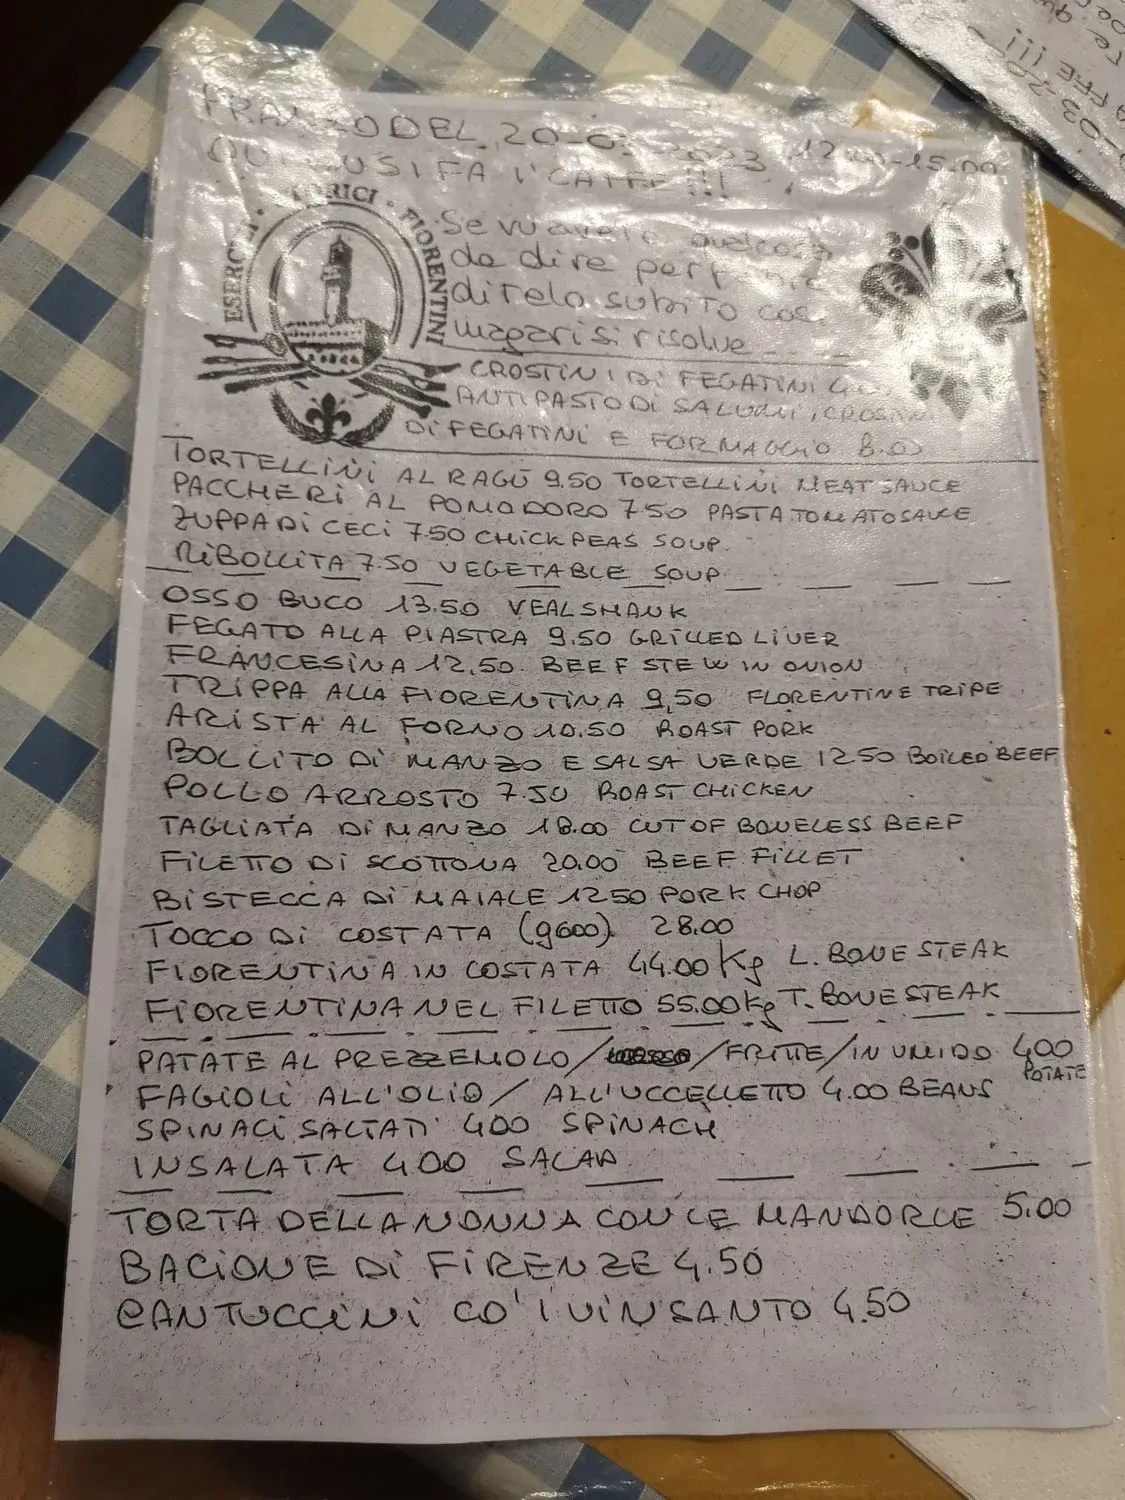 PRANZO DEL 20-03-2023 12.00-15.00
QUI 'UN SI FA I' CAFFE!!!
ESERCIZI · STORICI · FIORENTINI
Se vu avete qualcosa
da dire
ditelo subito
magari si risolve
CROSTINI DI FEGATINI
ANTIPASTO DI SALUMI, CROSTINI
DI FEGATINI E FORMAGGIO 8.00
TORTELLINI AL RAGÙ 9.50 TORTELLINI MEAT SAUCE
PACCHERI AL POMODORO 7.50 PASTA TOMATO SAUCE
ZUPPA DI CECI 7.50 CHICKPEAS SOUP.
RIBOLLITA 7.50 VEGETABLE SOUP
OSSO BUCO 13.50 VEAL SHANK
FEGATO ALLA PIASTRA 9.50 GRILLED LIVER
FRANCESINA 12,50. BEEF STEW IN ONION
TRIPPA ALLA FIORENTINA 9,50 FLORENTINE TRIPE
ARISTA AL FORNO 10.50 ROAST PORK
BOLLITO DI MANZO E SALSA VERDE 12.50 BOILED BEEF
POLLO ARROSTO 7.50 ROAST CHICKEN
TAGLIATA DI MANZO 18.00 CUT OF BONELESS BEEF
FILETTO DI SCOTTONA 20.00 BEEF FILLET
BISTECCA DI MAIALE 12.50 PORK CHOP
TOCCO DI COSTATA (g600) 28.00
FIORENTINA IN COSTATA 44.00 Kg L. BONE STEAK
FIORENTINA NEL FILETTO 55.00 Kg T. BONE STEAK
PATATE AL PREZZEMOLO / / FRITTE / IN UMIDO 4.00 POTATE
FAGIOLI ALL'OLIO / ALL'UCCELLETTO 4.00 BEANS
SPINACI SALTATI 4.00 SPINACH
INSALATA 4.00 SALAD
TORTA DELLA NONNA CON LE MANDORLE 5.00
BACIONE DI FIRENZE 4.50
CANTUCCINI CO' I VINSANTO 4.50